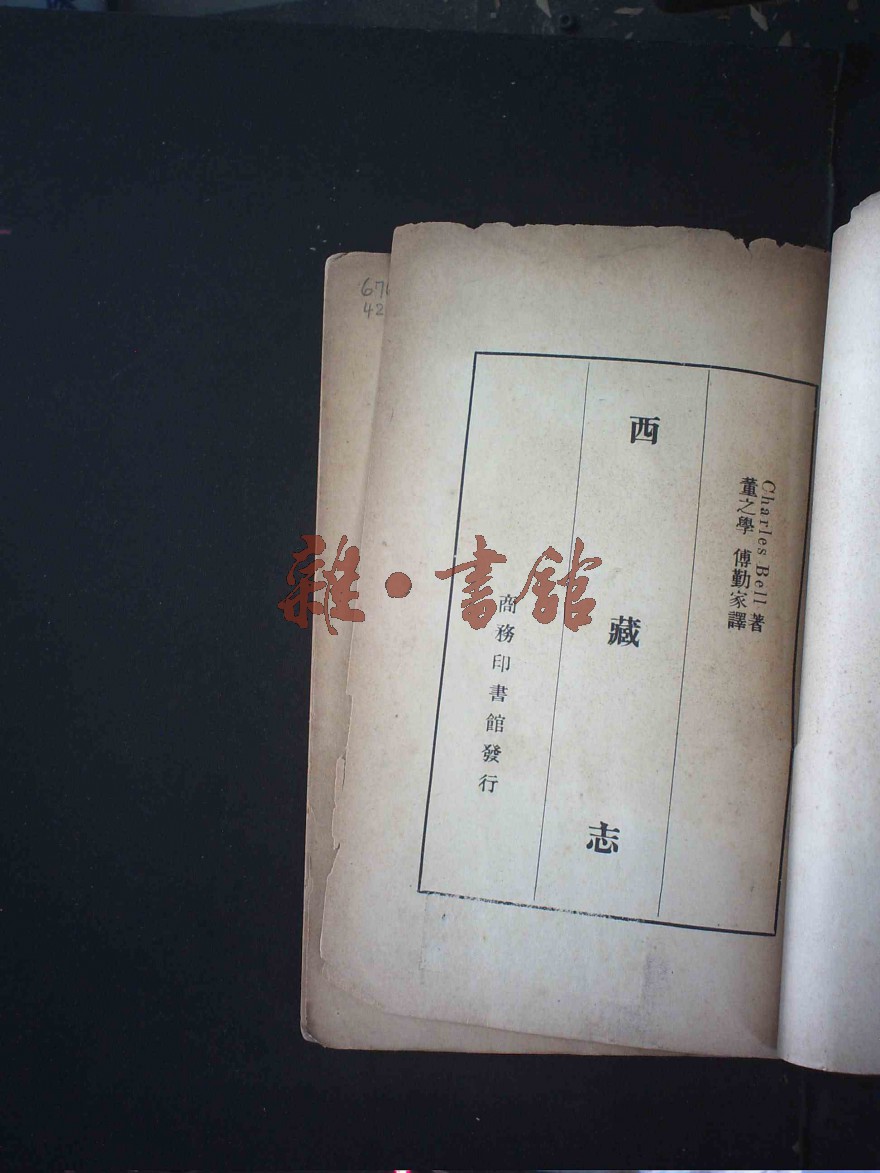 Charles Bell 著
董之學 傅勤家 譯
西藏志
商務印書館發行
雜·書館